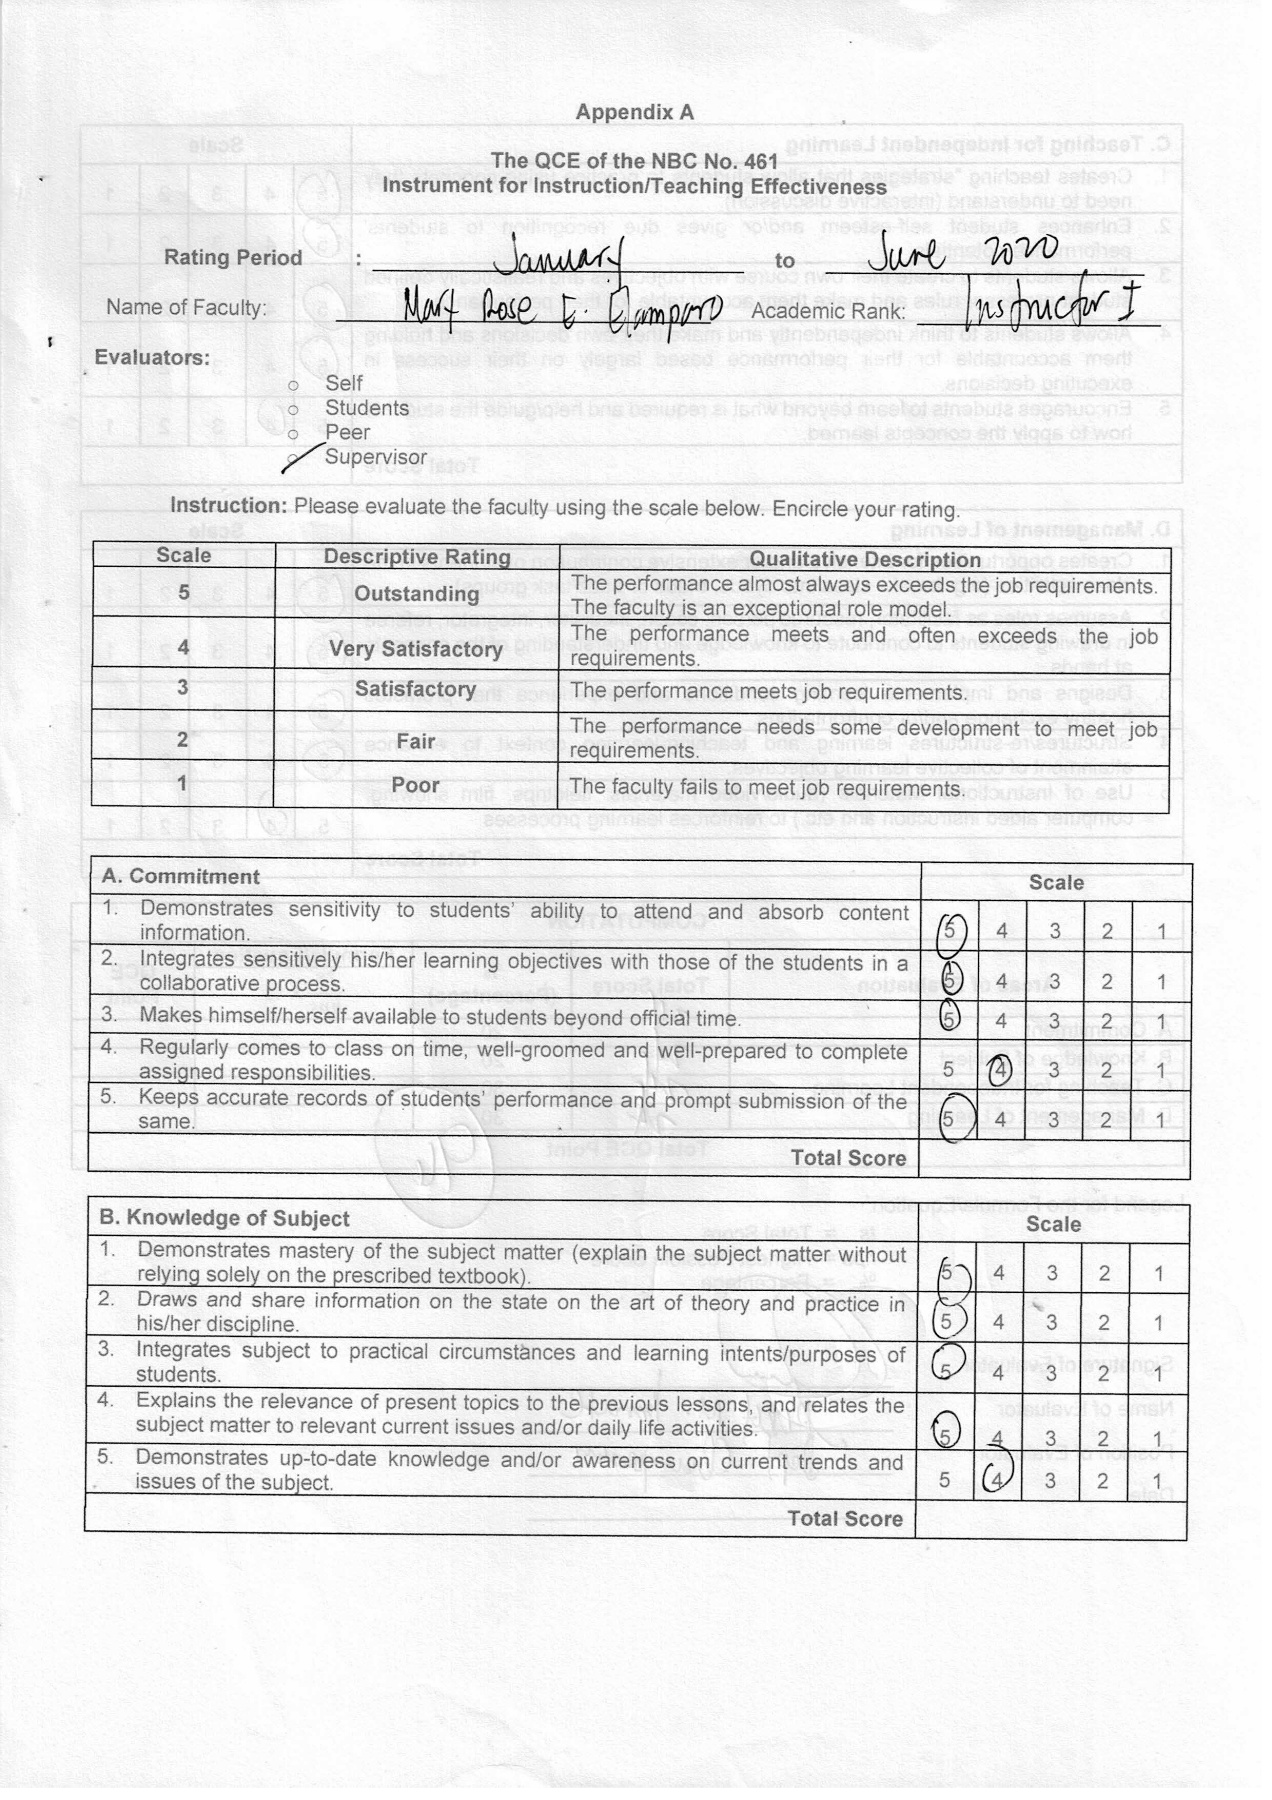 Appendix A
The QCE of the NBC No. 461
Instrument for Instruction/Teaching Effectiveness
Rating Period : January to June 2020
Name of Faculty: Mary Rose E. Elamparo Academic Rank: Instructor I
Evaluators:
Self
Students
Peer
Supervisor
Instruction: Please evaluate the faculty using the scale below. Encircle your rating.
Scale Descriptive Rating Qualitative Description
5 Outstanding The performance almost always exceeds the job requirements.
The faculty is an exceptional role model.
4 Very Satisfactory The performance meets and often exceeds the job
requirements.
3 Satisfactory The performance meets job requirements.
2 Fair The performance needs some development to meet job
requirements.
1 Poor The faculty fails to meet job requirements.
A. Commitment Scale
1. Demonstrates sensitivity to students' ability to attend and absorb content
information. 5 4 3 2 1
2. Integrates sensitively his/her learning objectives with those of the students in a
collaborative process. 5 4 3 2 1
3. Makes himself/herself available to students beyond official time. 5 4 3 2 1
4. Regularly comes to class on time, well-groomed and well-prepared to complete
assigned responsibilities. 5 4 3 2 1
5. Keeps accurate records of students' performance and prompt submission of the
same. 5 4 3 2 1
Total Score
B. Knowledge of Subject Scale
1. Demonstrates mastery of the subject matter (explain the subject matter without
relying solely on the prescribed textbook). 5 4 3 2 1
2. Draws and share information on the state on the art of theory and practice in
his/her discipline. 5 4 3 2 1
3. Integrates subject to practical circumstances and learning intents/purposes of
students. 5 4 3 2 1
4. Explains the relevance of present topics to the previous lessons, and relates the
subject matter to relevant current issues and/or daily life activities. 5 4 3 2 1
5. Demonstrates up-to-date knowledge and/or awareness on current trends and
issues of the subject. 5 4 3 2 1
Total Score